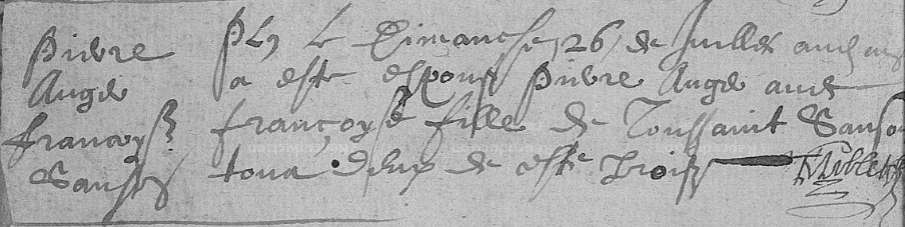 Pierre
Ange
françoyse
Sanson
Le Dimanche 26 de Juillet aud an
a este espousé Pierre Ange avec
françoyse fille de Toussaint Sanson
tous deux de este